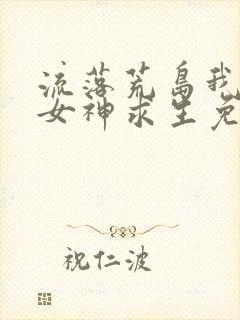 流落荒岛我
女神求生免
祝仁波